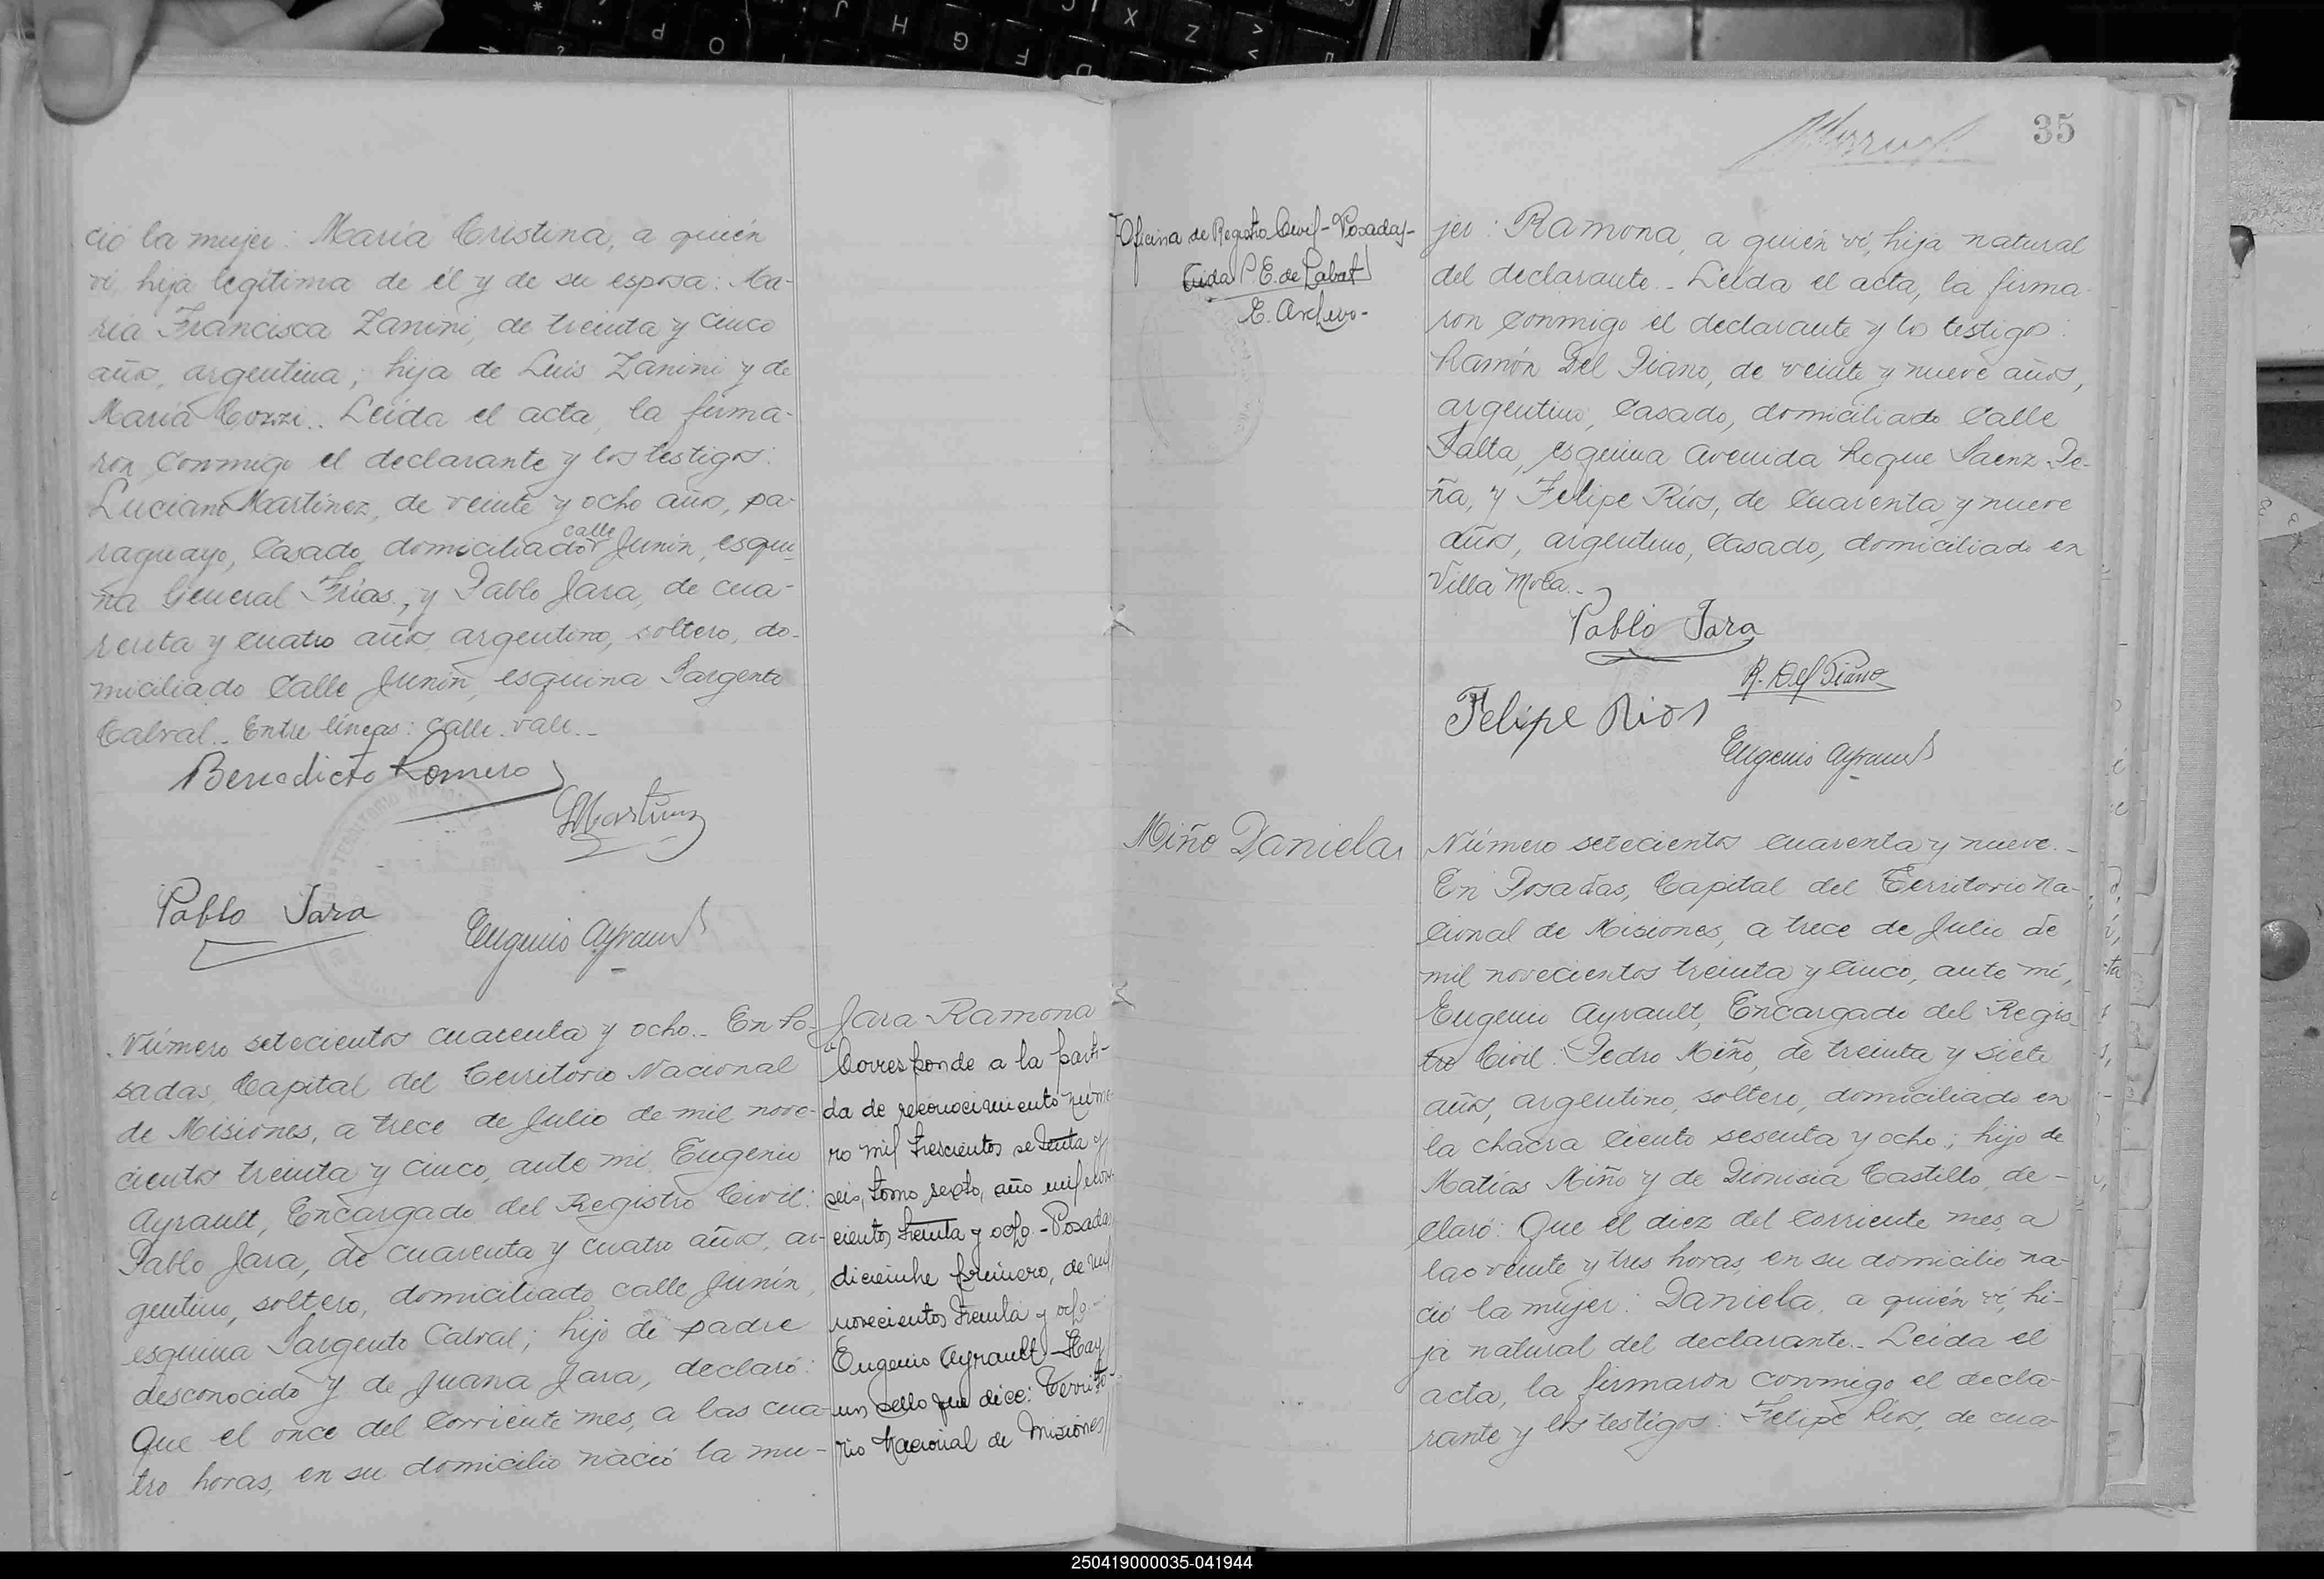 ció la mujer: María Cristina, a quién
ví, hija legítima de él y de su esposa: Ma-
ría Francisca Zanini, de treinta y cinco
años, argentina; hija de Luis Zanini y de
María Cozzi.. Leída el acta, la firma-
ron conmigo el declarante y los testigos:
Luciano Martínez, de veinte y ocho años, pa-
raguayo, casado, domiciliado calle Junín, esqui-
na General Frías, y Pablo Jara, de cua-
renta y cuatro años, argentino, soltero, do-
miciliado Calle Junín, esquina Sargento
Cabral.- Entre líneas: calle. vale.-
Benedicto Romero
LMartínez
Pablo Jara
Eugenio Ayrault
Número setecientos cuarenta y ocho.- En Po-
sadas, Capital del Territorio Nacional
de Misiones, a trece de Julio de mil nove-
cientos treinta y cinco, ante mí, Eugenio
Ayrault, Encargado del Registro Civil:
Pablo Jara, de cuarenta y cuatro años, ar-
gentino, soltero, domiciliado calle Junín,
esquina Sargento Cabral; hijo de padre
desconocido y de Juana Jara, declaró:
Que el once del corriente mes, a las cua-
tro horas, en su domicilio nació la mu-
Jara Ramona
"Corresponde a la parti-
da de reconocimiento núme-
ro mil trescientos setenta y
seis, tomo sexto, año mil nove-
cientos treinta y ocho.- Posadas
diciembre primero, de mil
novecientos treinta y ocho-
Eugenio Ayrault - Hay
un sello que dice: Territo-
rio Nacional de Misiones
35
Oficina de Registro Civil - Posadas-
Aida P. E. de Labat
E. Archivo-
jer: Ramona, a quién ví, hija natural
del declarante.- Leída el acta, la firma-
ron conmigo el declarante y los testigos:
Ramón Del Piano, de veinte y nueve años,
argentino, casado, domiciliado Calle
Salta, esquina Avenida Roque Saenz Pe-
ña, y Felipe Ríos, de cuarenta y nueve
años, argentino, casado, domiciliado en
Villa Mola.-
Pablo Jara
R. Del Piano
Felipe Rios
Eugenio Ayrault
Miño Daniela
Número setecientos cuarenta y nueve.-
En Posadas, Capital del Territorio Na-
cional de Misiones, a trece de Julio de
mil novecientos treinta y cinco, ante mí,
Eugenio Ayrault, Encargado del Regis-
tro Civil: Pedro Miño, de treinta y siete
años, argentino, soltero, domiciliado en
la chacra ciento sesenta y ocho; hijo de
Matías Miño y de Dionisia Castillo, de-
claró: Que el diez del corriente mes, a
las veinte y tres horas, en su domicilio na-
ció la mujer: Daniela, a quién ví, hi-
ja natural del declarante.- Leída el
acta, la firmaron conmigo el decla-
rante y los testigos: Felipe Ríos, de cua-
250419000035-041944